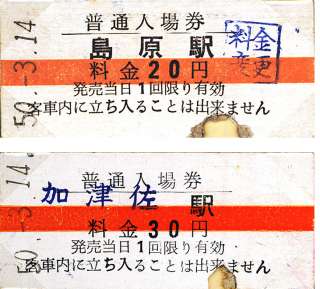 50.-3.14
普通入場券
島原駅
料金変更
料金20円
発売当日1回限り有効
客車内に立ち入ることは出来ません
50.-3.14
普通入場券
加津佐駅
料金30円
発売当日1回限り有効
客車内に立ち入ることは出来ません